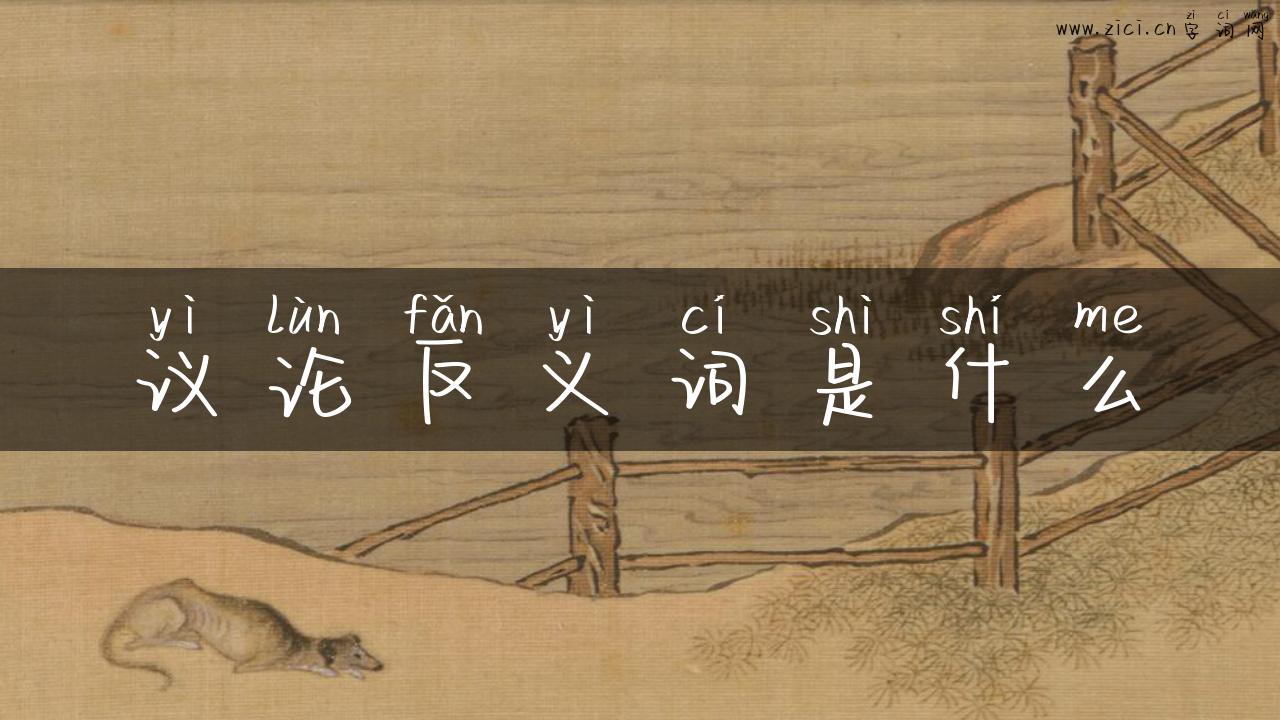 zì cí wǎng
www.zici.cn 字词网
yì lùn fǎn yì cí shì shí me
议论反义词是什么